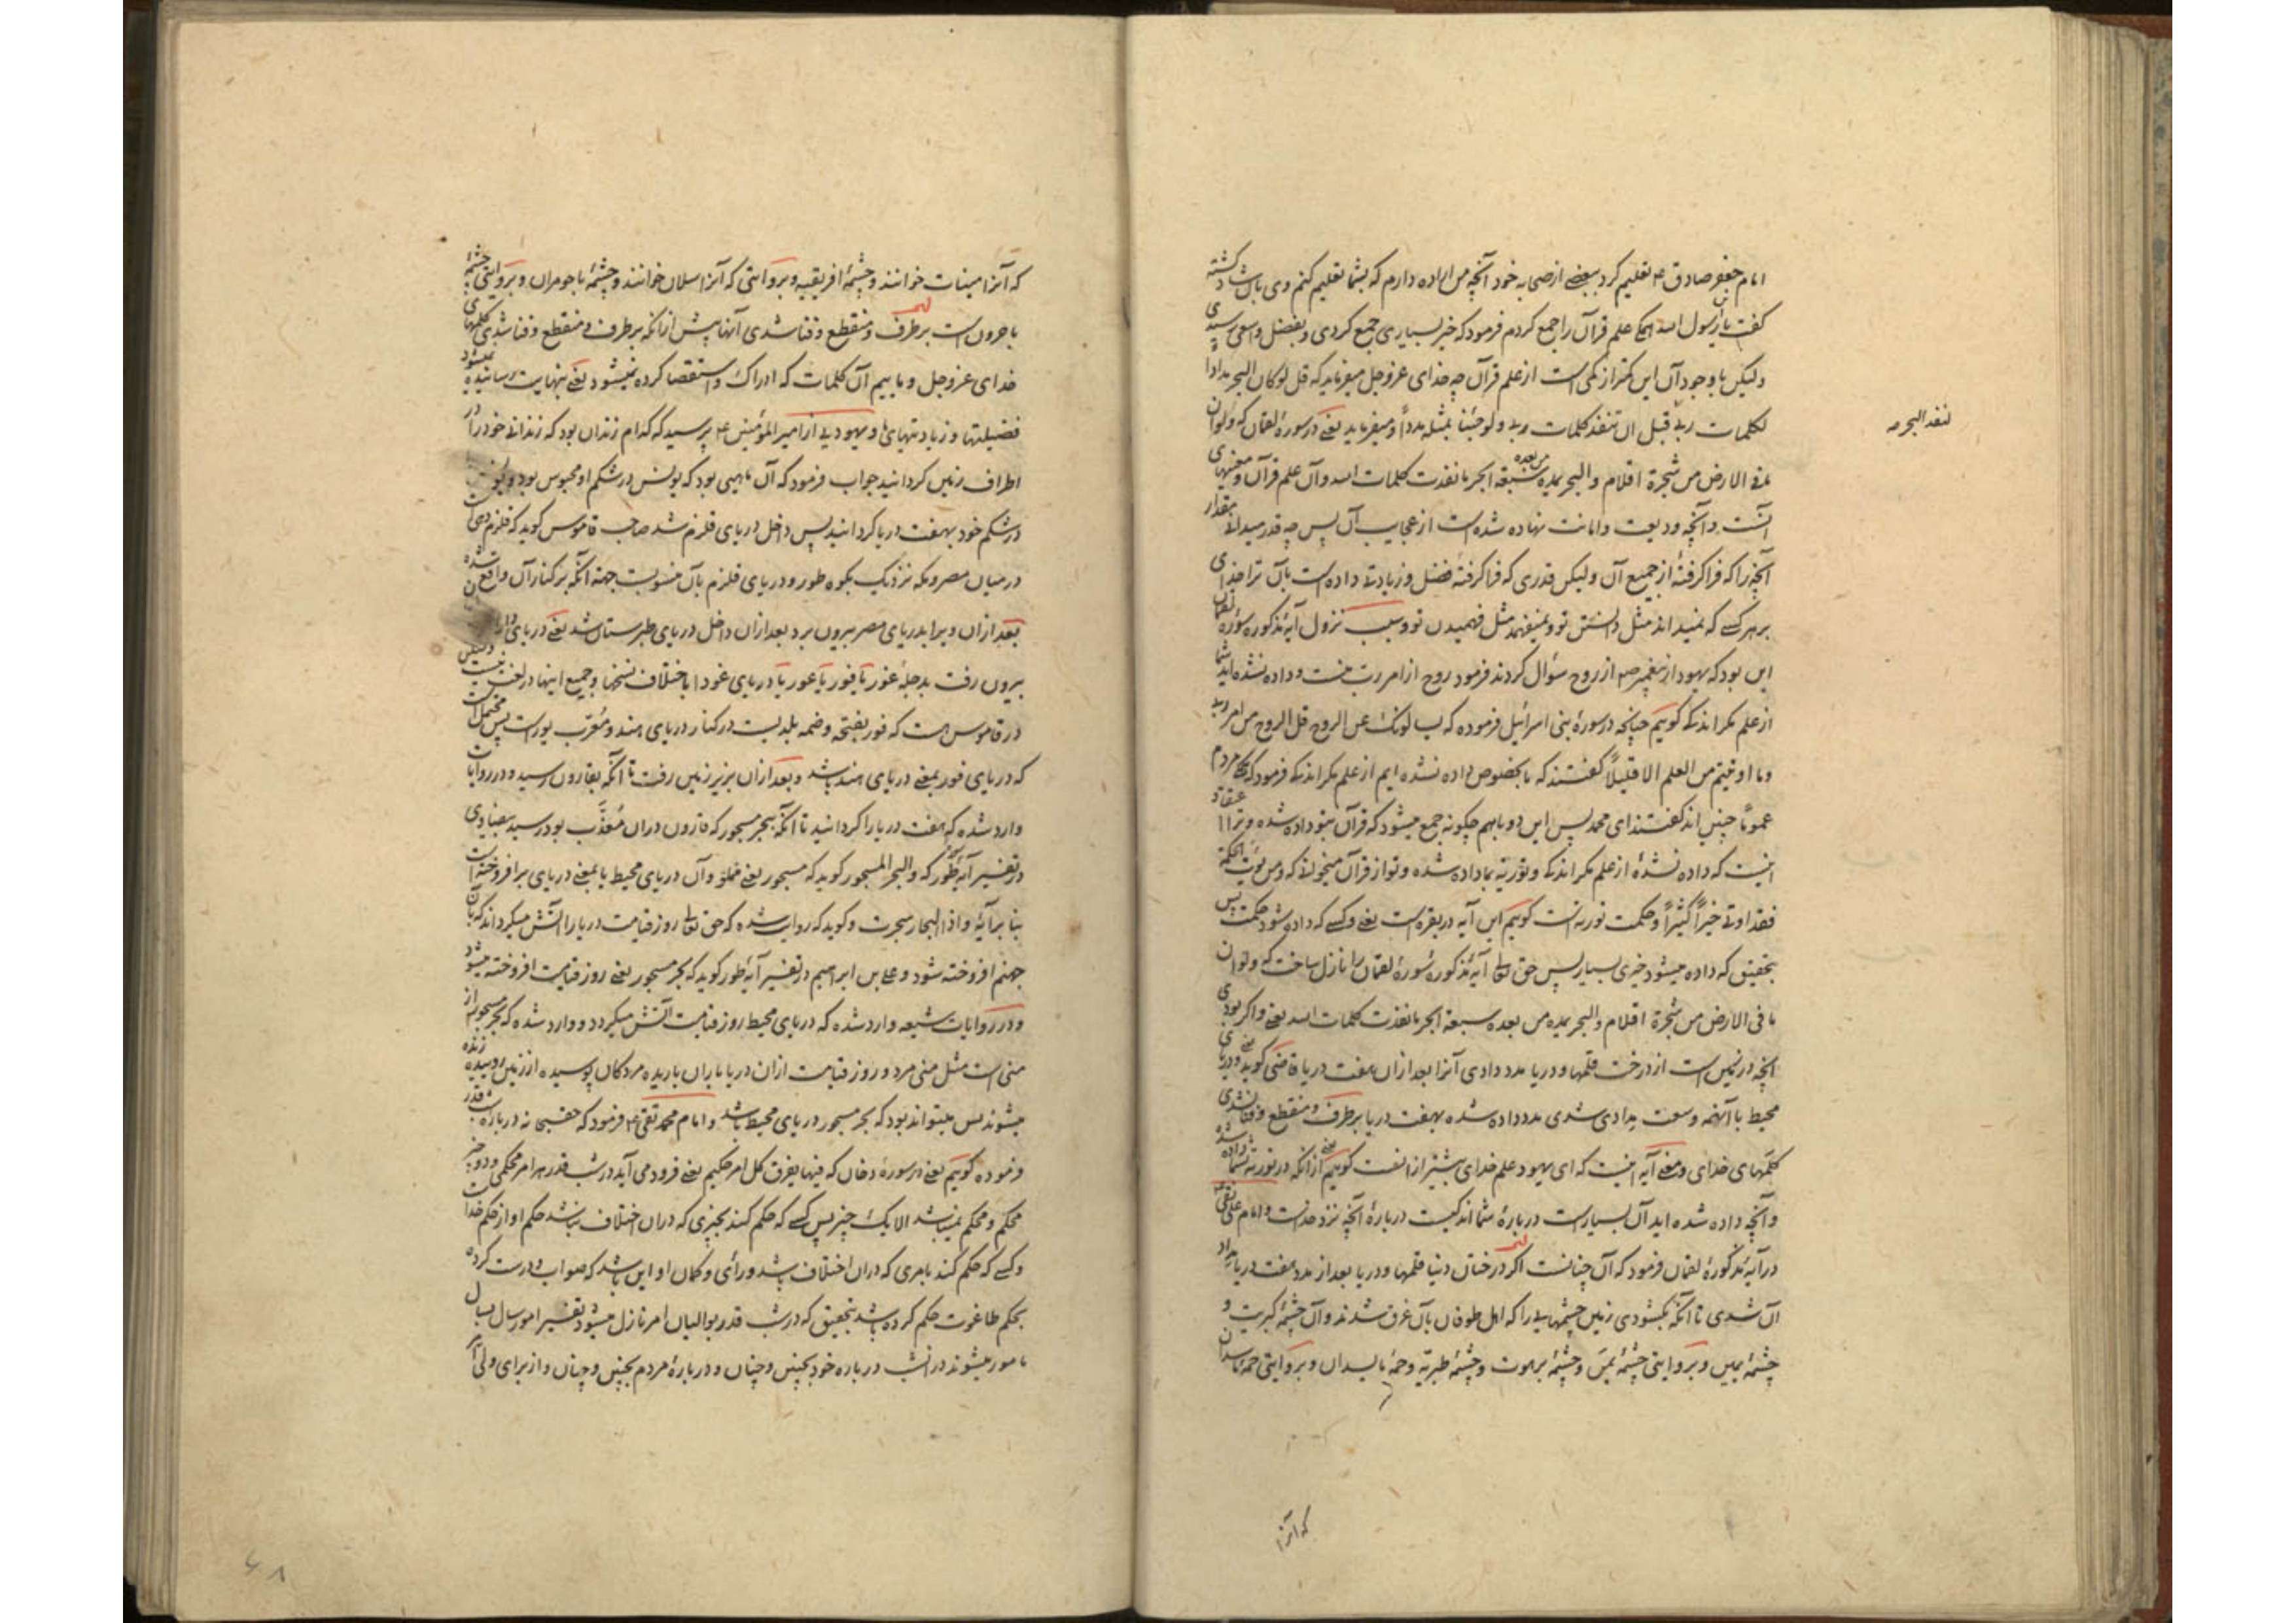 امام جعفر صادق ع تعلیم کرد ببعضی از صحابه خود آنچه من اراده دارم که بشما تعلیم کنم وی باش کشته
کفت یا بن رسول الله همکی علم قرآن را جمع کردم فرمود که خیر بسیاری جمع کردی و بفضل واسعی رسیدی
ولیکن با وجود آن این کمتر از کمی است از علم قرآن چه خدای عزوجل میفرماید که قل لو کان البحر مدادا
لکلمات ربی قبل ان تنفد کلمات ربی ولو جئنا بمثله مددا و میفرماید یعنی در سورهٔ لقمان که ولو ان
لنفد البحر صح
ما فی الارض من شجرة اقلام والبحر یمده من بعده سبعة ابحر ما نفدت کلمات الله و آن علم قرآن و معنیهای
آنست و آنچه ودیعت و امانت نهاده شده است از عجایب آن پس چه قدر میدانی مقدار
آنچه را که فرا کرفتهٔ از جمیع آن ولیکن قدری که فرا کرفتهٔ فضل و زیادتی داده است بآن ترا خدای
بر هر کسی که نمیداند مثل دانستن تو و نمیفهمد مثل فهمیدن تو و سبب نزول آیهٔ مذکوره سورهٔ لقمان
این بود که یهود از پیغمبر ص از روح سؤال کردند فرمود روح از امر رب منست و داده نشده اید شما
از علم مکر اندکی کوییم چنانچه در سورهٔ بنی اسرائیل فرموده که یسألونک عن الروح قل الروح من امر ربی
وما اوتیتم من العلم الا قلیلا کفتند که ما بخصوص داده نشده ایم از علم مکر اندکی فرمود که مردم
عموما چنین اند کفتند ای محمد پس این دو باهم چکونه جمع میشود که قرآن بتو داده شده و ترا اعتقاد
اینست که داده نشدهٔ از علم مکر اندکی و توریة بما داده شده و تو از قرآن میخوانی که ومن یؤت الحکمة
فقد اوتی خیرا کثیرا و حکمت توریه است کوییم این آیه در بقره است یعنی و کسی که داده شود حکمت پس
بتحقیق که داده میشود خیری بسیار پس حق تعالی آیهٔ مذکورهٔ سورهٔ لقمان را نازل ساخت که ولو ان
ما فی الارض من شجرة اقلام والبحر یمده من بعده سبعة ابحر ما نفدت کلمات الله یعنی و اکر بودی
آنچه در زمین است از درخت قلمها و دریا مدد دادی آنرا بعد از آن هفت دریا قاضی کوید یعنی و دریای
محیط با آنهمه وسعت مدادی شدی مدد داده شده بهفت دریا برطرف و منقطع و فنا نشدی
کلمهای خدای و معنی آیه اینست که ای یهود علم خدای بیشتر از آنست کوییم یعنی از آنکه در توریة بشما داده شده
و آنچه داده شده اید آن بسیار است دربارهٔ شما اندکیست دربارهٔ آنچه نزد خداست و امام علی نقی ع
در آیهٔ مذکورهٔ لقمان فرمود که آن چنانست اکر درختان دنیا قلمها و دریا بعد از مدد هفت دریا مداد
آن شدی تا آنکه بکشودی زمین چشمهایی را که اهل طوفان بآن غرق شدند و آن چشمهٔ کبریت و
چشمهٔ یمین و بروایتی چشمهٔ یمن و چشمهٔ برهوت و چشمهٔ طبریه و حمهٔ ماسیدان و بروایتی حمهٔ ماسدان
که آنرا
که آنرا مینات خوانند و چشمهٔ افریقیه و بروایتی که آنرا اسلان خوانند و چشمهٔ باجوران و بروایتی چشمهٔ
باحرون است برطرف و منقطع و فنا شدی آنها پیش از آنکه برطرف و منقطع و فنا شدی کلمهای
خدای عزوجل و ماییم آن کلمات که ادراک و استقصا کرده نمیشود یعنی بنهایت رسانیده نمیشود
فضیلتها و زیادتیهای ما و یهودیی از امیر المؤمنین ع پرسید که کدام زندان بود که زندانی خود را در
اطراف زمین کردانید جواب فرمود که آن ماهیی بود که یونس در شکم او محبوس بود
در شکم خود بهفت دریا کردانید پس داخل دریای قلزم شد صاحب قاموس کوید که قلزم دهی است
در میان مصر و مکه نزدیک بکوه طور و دریای قلزم بآن منسوبست جهة آنکه بر کنار آن واقع شده
بعد از آن ویرا بدریای مصر بیرون برد بعد از آن داخل دریای طبرستان شد یعنی دریای
بیرون رفت بدجلهٔ غور یا فور یا عور یا دریای غودا باختلاف نسخها و جمیع اینها در لغت نیست ولیکن
در قاموس هست که فور بفتحه و ضمه بلدیست در کنار دریای هند و معرب پور است پس محتمل است
که دریای فور بمعنی دریای هند باشد و بعد از آن بزیر زمین رفت تا آنکه بقارون رسید و در روایات
وارد شده که هفت دریا را کردانید تا آنکه ببحر مسجور که قارون در آن معذب بود رسید بیضاوی
در تفسیر آیهٔ طور که والبحر المسجور کوید که مسجور یعنی مملو و آن دریای محیط یا بمعنی دریای برافروخته است
بنا بر آیهٔ واذا البحار سجرت و کوید که روایت شده که حق تعالی روز قیامت دریا را آتش میکرداند که بآن
جهنم افروخته شود و علی بن ابراهیم در تفسیر آیهٔ طور کوید که بحر مسجور یعنی روز قیامت افروخته میشود
و در روایات شیعه وارد شده که دریای محیط روز قیامت آتش میکردد و وارد شده که بحر مسجور از
منی است مثل منی مرد و روز قیامت از آن دریا باران باریده مردکان پوسیده از زمین روییده زنده
میشوند پس میتواند بود که بحر مسجور دریای محیط باشد و امام محمد تقی ع فرمود که حقسبحانه درباره شب قدر
فرموده کوییم یعنی در سورهٔ دخان که فیها یفرق کل امر حکیم یعنی فرود می آید در شب قدر هر امر محکمی و دو چیز
محکم و محکم نمیباشد الا یک چیز پس کسی که حکم کند بچیزی که در آن اختلاف نباشد حکم او از حکم خداست
و کسی که حکم کند بامری که در آن اختلاف باشد و رأی و کمان او این باشد که صواب و درست کرده
بحکم طاغوت حکم کرده باشد بتحقیق که در شب قدر بوالیان امر نازل میشود تفسیر امور سال بسال
مامور میشوند در آنشب درباره خود بچنین و چنان و دربارهٔ مردم بچنین و چنان و از برای ولی امر